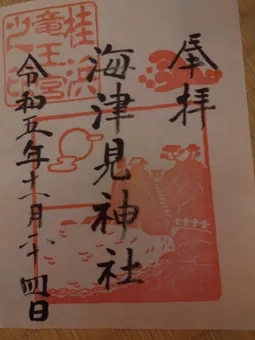 奉拝
海津見神社
令和五年十一月廿四日
桂浜
竜王宮
之印